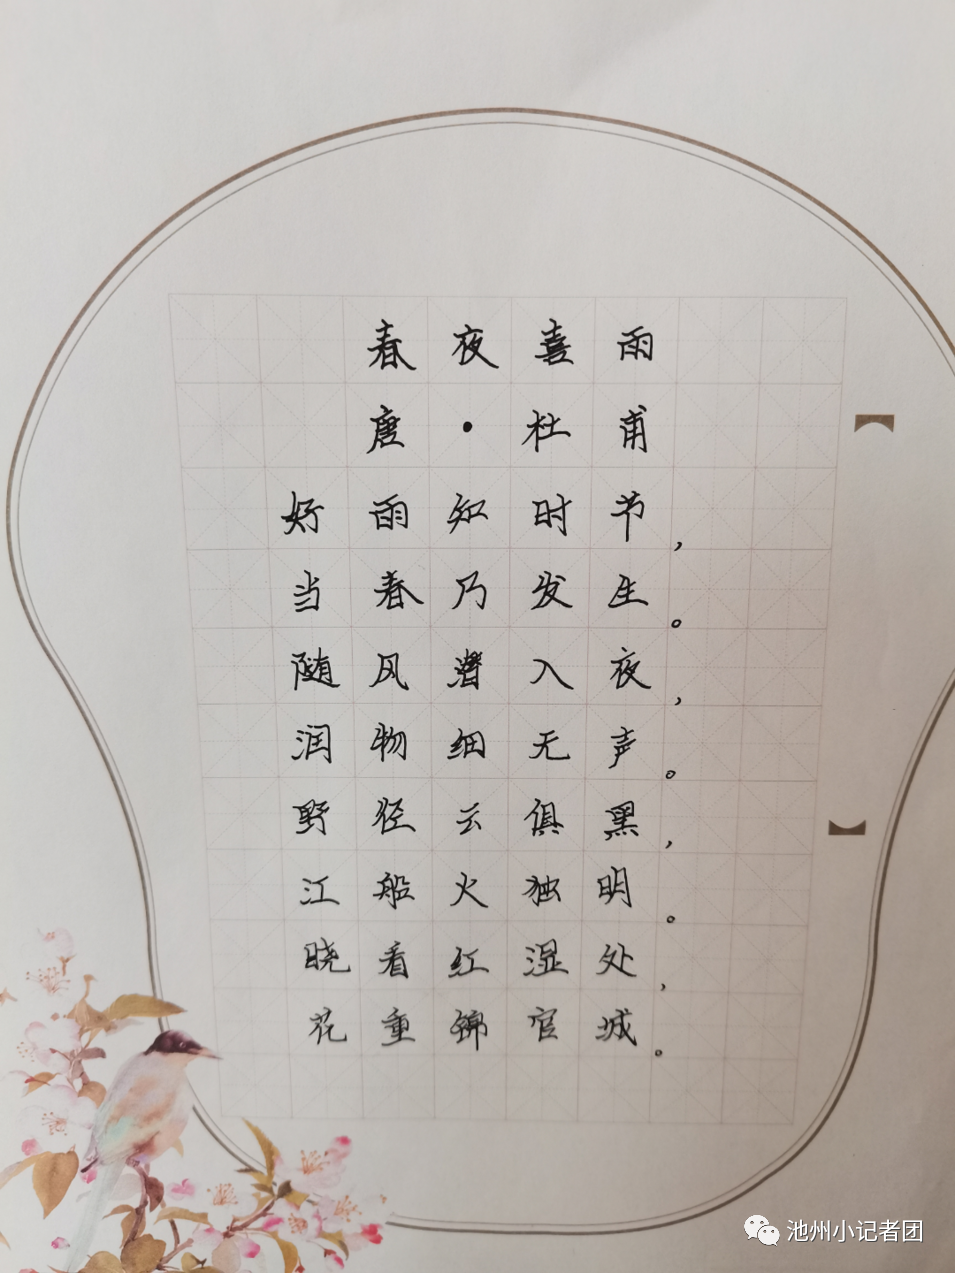 春夜喜雨
唐·杜甫
好雨知时节，
当春乃发生。
随风潜入夜，
润物细无声。
野径云俱黑，
江船火独明。
晓看红湿处，
花重锦官城。
【
】
池州小记者团